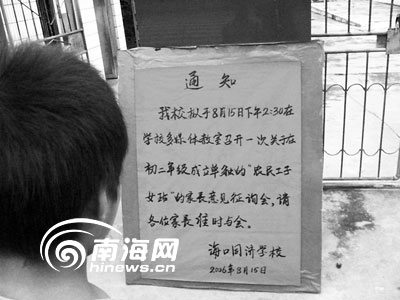 通知
我校拟于8月15日下午2:30在
学校多媒体教室召开一次关于在
初二年级成立单独的“农民工子
女班”的家长意见征询会,请
各位家长准时与会。
海口同济学校
2006年8月15日
南海网
www.hinews.cn